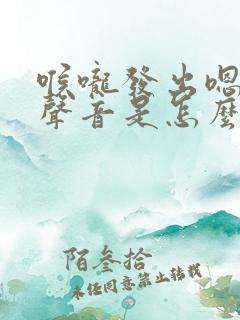 喉嚨發出嗯
聲音是怎麼
陌叁拾
未经同意禁止转载